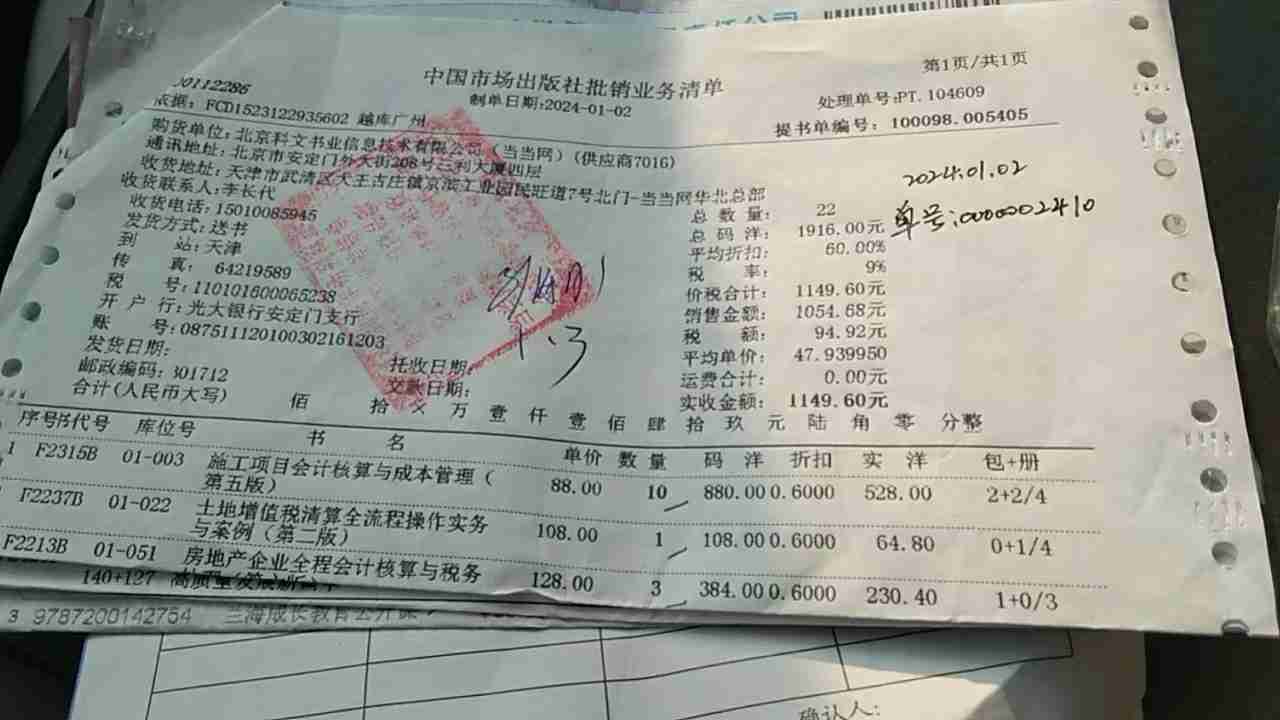 第1页/共1页
中国市场出版社批销业务清单
00112286
制单日期:2024-01-02
处理单号:PT.104609
依据: FCD1523122935602 越库广州
提书单编号: 100098.005405
购货单位:北京科文书业信息技术有限公司(当当网)(供应商7016)
通讯地址:北京市安定门外大街208号三利大厦四层
收货地址:天津市武清区大王古庄镇京滨工业园民旺道7号北门-当当网华北总部
2024.01.02
收货联系人:李长代
总数量: 22
单号:0000002410
收货电话:15010085945
总码洋: 1916.00元
发货方式:送书
平均折扣: 60.00%
到站:天津
税率: 9%
传真: 64219589
价税合计: 1149.60元
税号:110101600065238
销售金额: 1054.68元
开户行:光大银行安定门支行
税额: 94.92元
账号:0875111201003021​61203
平均单价: 47.939950
发货日期:
托收日期:
运费合计: 0.00元
1.3
邮政编码:301712
交款日期:
实收金额: 1149.60元
合计(人民币大写) 佰 拾 万 壹 仟 壹 佰 肆 拾 玖 元 陆 角 零 分整
序号 书代号 库位号 书 名 单价 数量 码洋 折扣 实洋 包+册
1 F2315B 01-003 施工项目会计核算与成本管理( 88.00 10 880.00 0.6000 528.00 2+2/4
第五版)
F2237B 01-022 土地增值税清算全流程操作实务 108.00 1 108.00 0.6000 64.80 0+1/4
与案例(第二版)
F2213B 01-051 房地产企业全程会计核算与税务 128.00 3 384.00 0.6000 230.40 1+0/3
140+127
3 9787200142754
确认人: